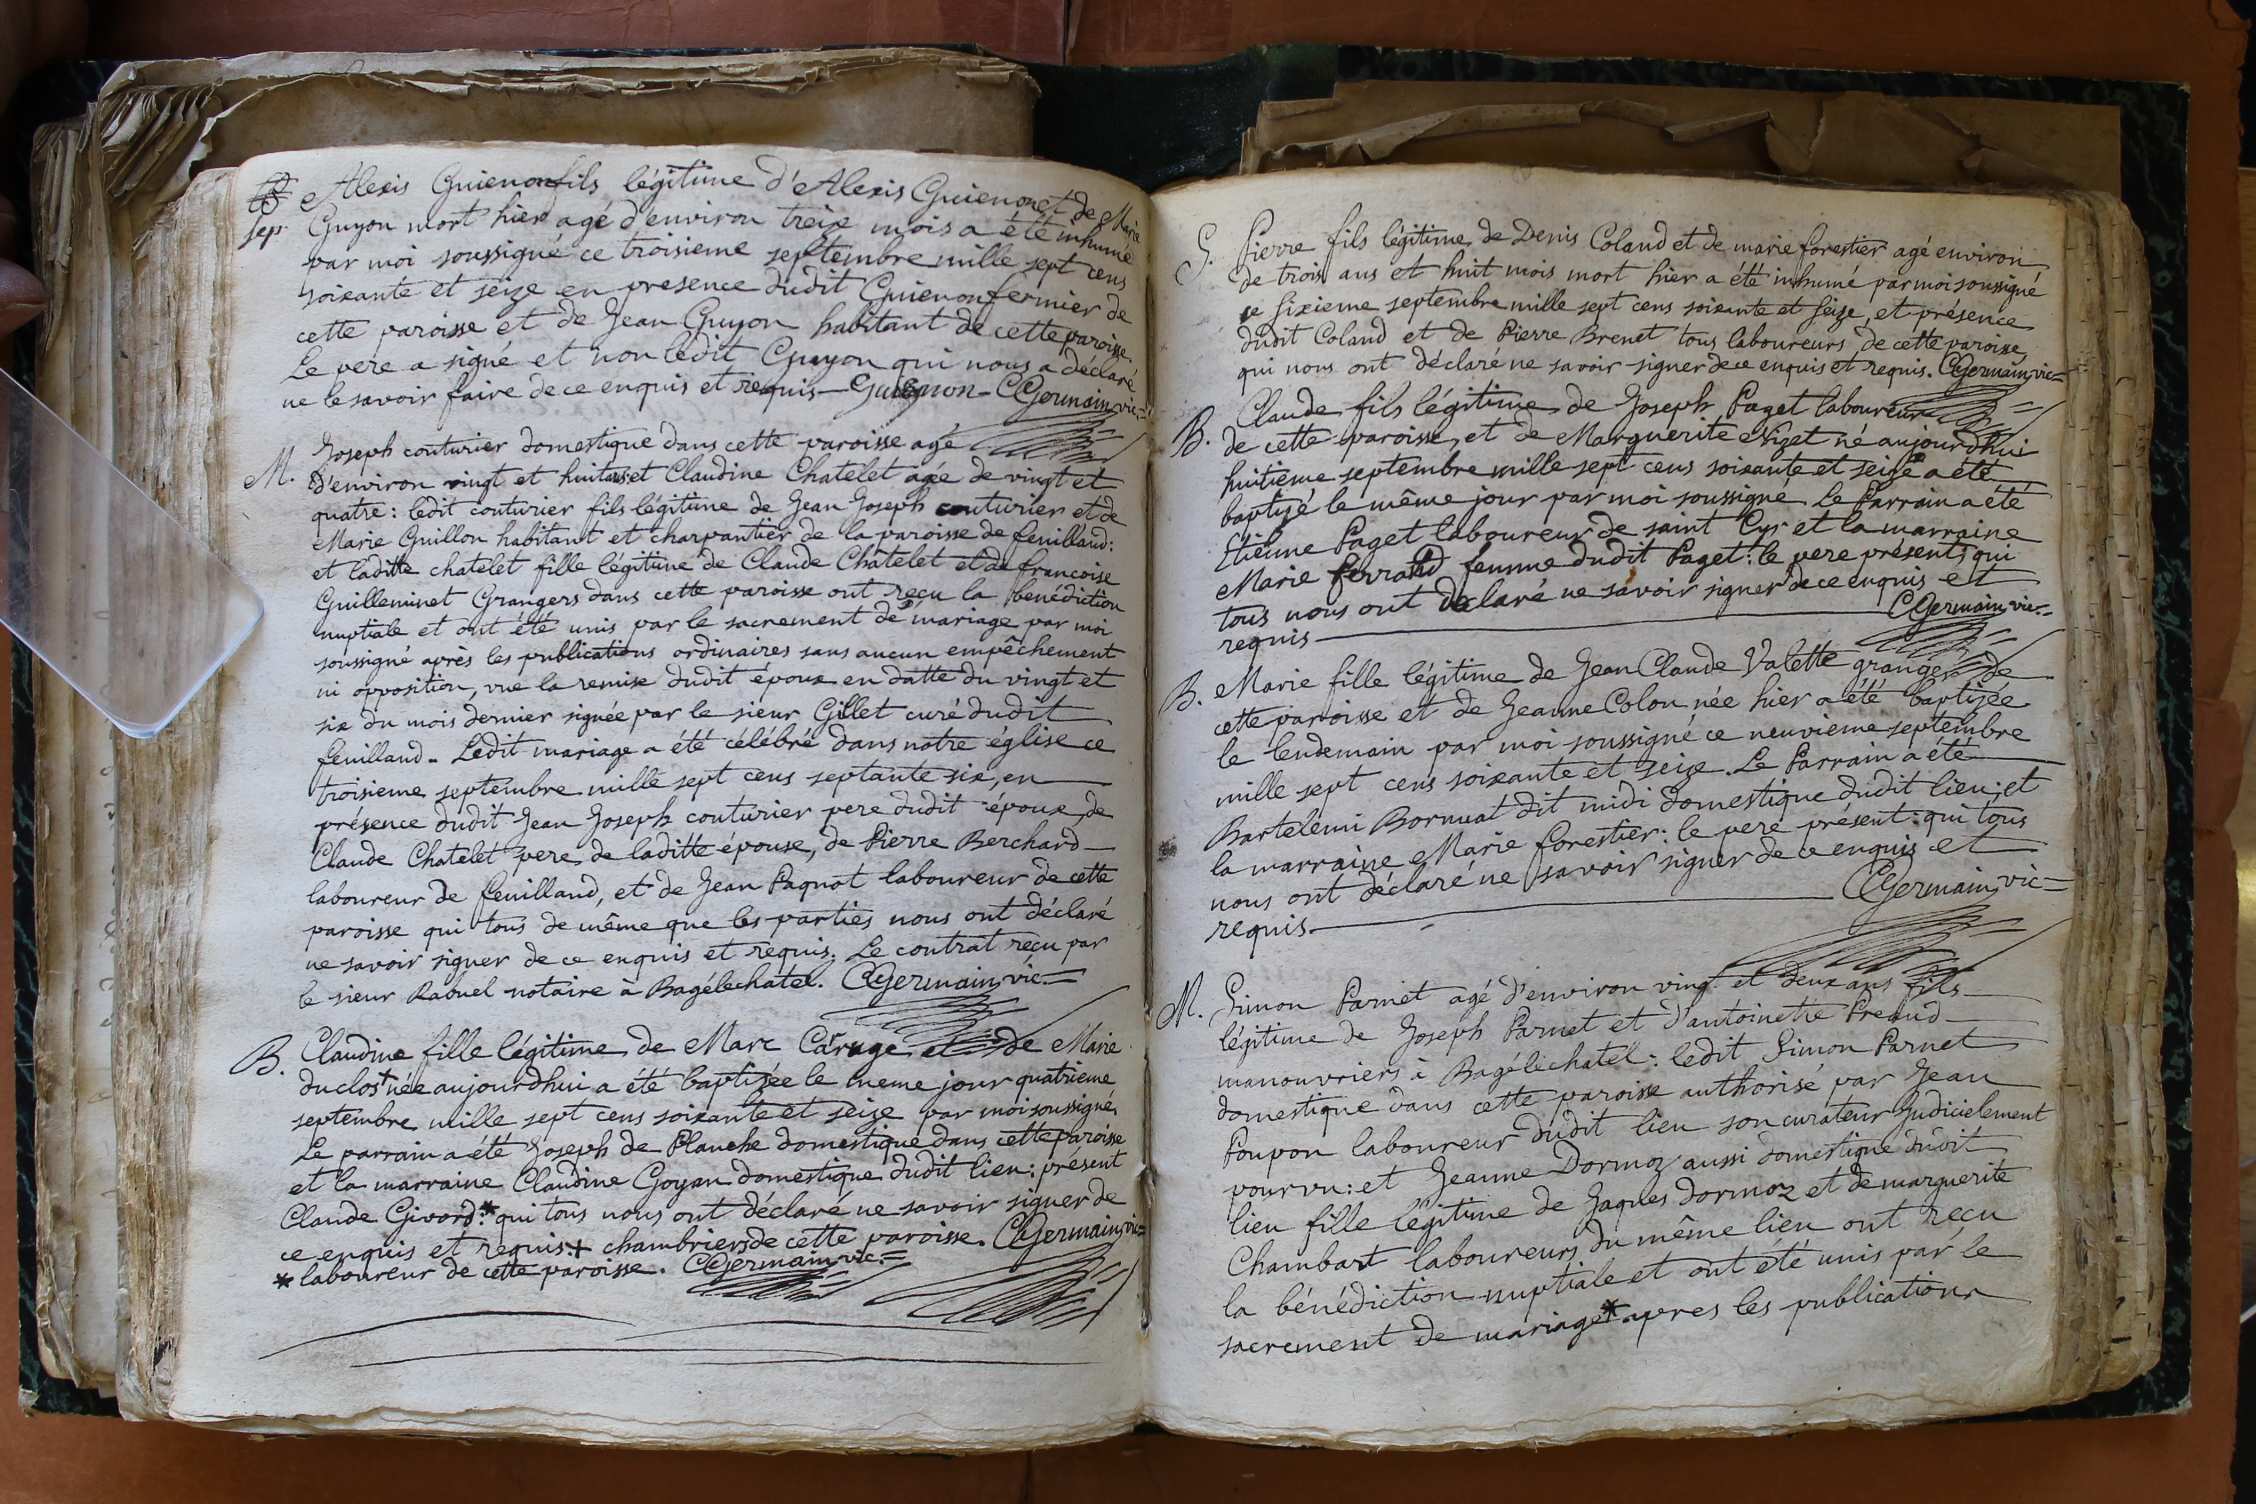 Alexis Guienon fils légitime d'Alexis Guienon et de Marie
sep. Guyon mort hier agé d'environ treize mois a été inhumé
par moi soussigné ce troisieme septembre mille sept cens
soixante et seize en presence dudit Guienon fermier de
cette paroisse et de Jean Guyon habitant de cette paroisse.
Le pere a signé et non ledit Guyon qui nous a déclaré
ne le savoir faire de ce enquis et requis - Guignon - CGermain, vic=
Joseph couturier domestique dans cette paroisse agé
M. d'environ vingt et huit ans et Claudine Chatelet agée de vingt et
quatre : ledit couturier fils légitime de Jean Joseph couturier et de
Marie Guillon habitant et charpantier de la paroisse de feuilland :
et laditte chatelet fille légitime de Claude Chatelet et de francoise
Guilleminet Grangers dans cette paroisse ont reçu la bénédiction
nuptiale et ont été unis par le sacrement de mariage par moi
soussigné après les publications ordinaires sans aucun empêchement
ni opposition, vue la remise dudit époux en datte du vingt et
six du mois dernier signée par le sieur Gillet curé dudit
feuilland - Ledit mariage a été célébré dans notre église ce
troisieme septembre mille sept cens septante six, en
présence dudit Jean Joseph couturier pere dudit époux, de
Claude Chatelet pere de laditte épouse, de Pierre Berchard
laboureur de feuilland, et de Jean Paquot laboureur de cette
paroisse qui tous de même que les parties nous ont déclaré
ne savoir signer de ce enquis et requis. Le contrat reçu par
le sieur Rabuel notaire à Bagélechatel. CGermain, vic=
B. Claudine fille légitime de Marc Caruge et de Marie
duclos + née aujourdhui a été baptisée le meme jour quatrieme
septembre mille sept cens soixante et seize par moi soussigné
Le parrain a été Joseph de Planche domestique dans cette paroisse
et la marraine Claudine Goyan domestique dudit lieu : présent
Claude Givord : * qui tous nous ont déclaré ne savoir signer de
ce enquis et requis. + chambriers de cette paroisse. CGermain, vic=
* laboureur de cette paroisse. CGermain, vic.=
S. Pierre fils légitime de Denis Coland et de marie forestier agé environ
de trois ans et huit mois mort hier a été inhumé par moi soussigné
ce sixieme septembre mille sept cens soixante et seize, et présence
dudit Coland et de Pierre Brenet tous laboureurs de cette paroisse
qui nous ont déclaré ne savoir signer de ce enquis et requis. CGermain, vic=
Claude fils légitime de Joseph Paget laboureur
B. de cette paroisse, et de Marguerite Nizet né aujourdhui
huitieme septembre mille sept cens soixante et seize a été
baptizé le même jour par moi soussigné Le Parrain a été
Etienne Paget laboureur de saint Cyr et la marraine
Marie ferrand femme dudit Paget : le pere présent ; qui
tous nous ont déclaré ne savoir signer de ce enquis et
requis CGermain, vic.=
B. Marie fille légitime de Jean Claude Valette granger de
cette paroisse et de Jeanne Colon née hier a été baptizée
le lendemain par moi soussigné ce neuvieme septembre
mille sept cens soixante et seize. Le Parrain a été
Bartelemi Bornuat dit midi domestique dudit lieu ; et
la marraine Marie forestier : le pere présent : qui tous
nous ont déclaré ne savoir signer de ce enquis et
requis. CGermain, vic=
M. Simon Parnet agé d'environ vingt et deux ans fils
légitime de Joseph Parnet et d'antoinette Preaud
manouvriers à Bagélechatel : ledit Simon Parnet
domestique dans cette paroisse authorisé par Jean
Poupon laboureur dudit lieu son curateur Judicielement
pourvu : et Jeanne Dormoz aussi domestique dudit
lieu fille légitime de Jaques Dormoz et de marguerite
Chambart laboureurs du même lieu ont reçu
la bénédiction nuptiale et ont été unis par le
sacrement de mariage * apres les publications